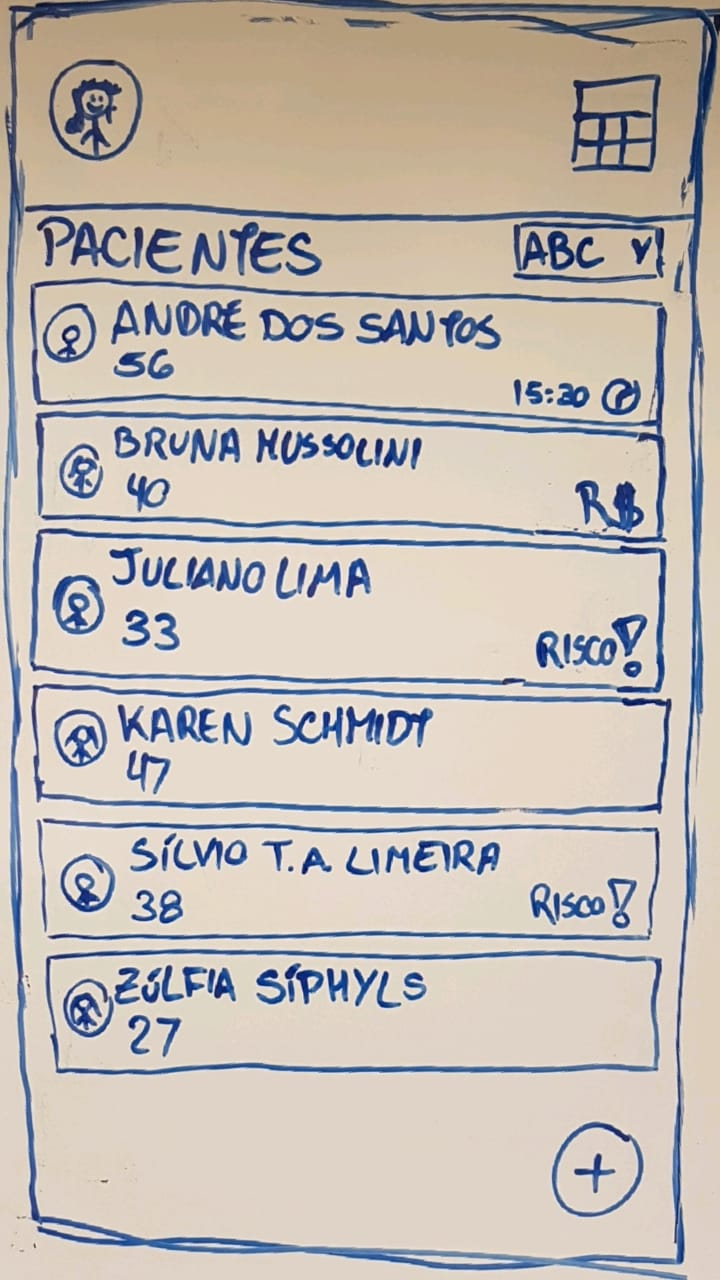 PACIENTES
ABC
ANDRÉ DOS SANTOS
56
15:20
BRUNA MUSSOLINI
40
R$
JULIANO LIMA
33
RISCO!
KAREN SCHMIDT
47
SÍLVIO T.A. LIMEIRA
38
RISCO!
ZÚLFIA SÍPHYLS
27
+